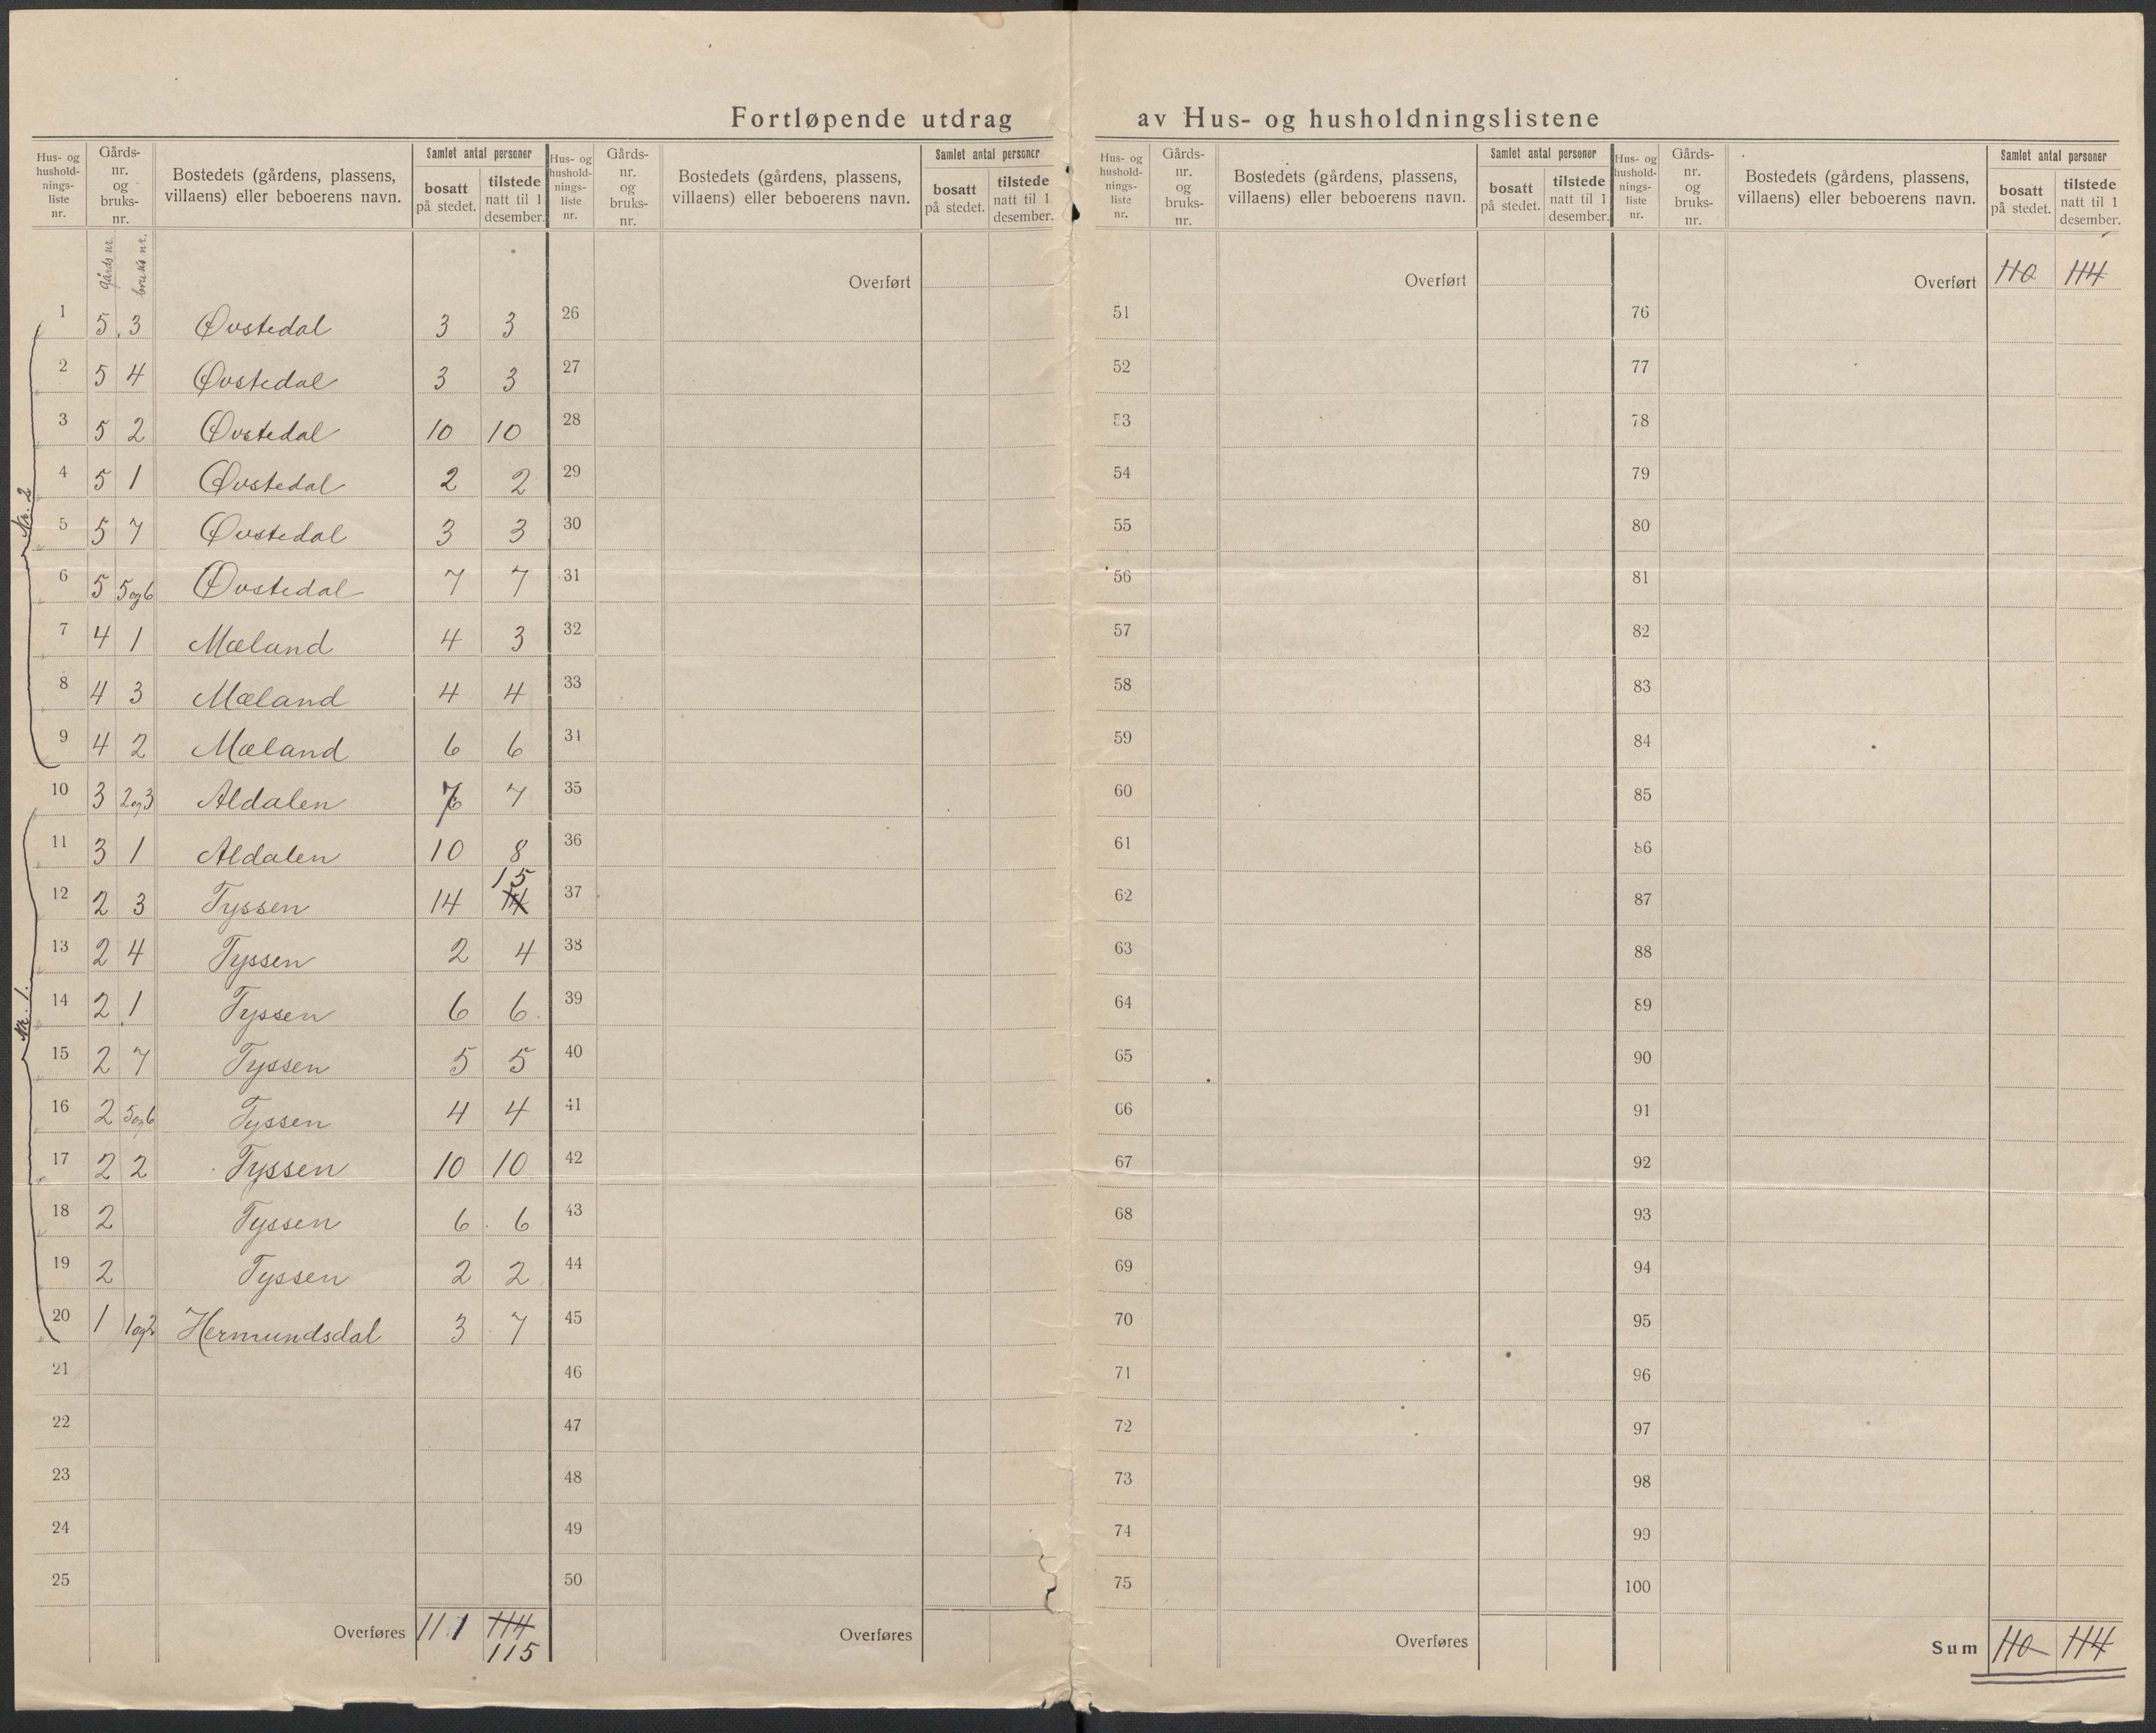 Fortløpende utdrag av Hus- og husholdningslistene
Hus- og hushold-nings-liste nr. Gårds-nr. og bruks-nr. Bostedets (gårdens, plassens, villaens) eller beboerens navn. Samlet antal personer bosatt på stedet. tilstede natt til 1 desember.
Gårds nr. bruks nr.
1 5 3 Øvstedal 3 3
2 5 4 Øvstedal 3 3
3 5 2 Øvstedal 10 10
4 5 1 Øvstedal 2 2
5 5 7 Øvstedal 3 3
6 5 5og6 Øvstedal 7 7
7 4 1 Mæland 4 3
8 4 3 Mæland 4 4
9 4 2 Mæland 6 6
Nr. 2
10 3 2og3 Aldalen 7 7
11 3 1 Aldalen 10 8
12 2 3 Tyssen 14 15 14
13 2 4 Tyssen 2 4
14 2 1 Tyssen 6 6
15 2 7 Tyssen 5 5
16 2 5og6 Tyssen 4 4
17 2 2 Tyssen 10 10
18 2 Tyssen 6 6
19 2 Tyssen 2 2
20 1 1og2 Hermundsdal 3 7
Nr. 1.
21
22
23
24
25
Overføres 111 114
115
Hus- og hushold-nings-liste nr. Gårds-nr. og bruks-nr. Bostedets (gårdens, plassens, villaens) eller beboerens navn. Samlet antal personer bosatt på stedet. tilstede natt til 1 desember.
Overført
26
27
28
29
30
31
32
33
34
35
36
37
38
39
40
41
42
43
44
45
46
47
48
49
50
Overføres
Hus- og hushold-nings-liste nr. Gårds-nr. og bruks-nr. Bostedets (gårdens, plassens, villaens) eller beboerens navn. Samlet antal personer bosatt på stedet. tilstede natt til 1 desember.
Overført
51
52
53
54
55
56
57
58
59
60
61
62
63
64
65
66
67
68
69
70
71
72
73
74
75
Overføres
Hus- og hushold-nings-liste nr. Gårds-nr. og bruks-nr. Bostedets (gårdens, plassens, villaens) eller beboerens navn. Samlet antal personer bosatt på stedet. tilstede natt til 1 desember.
Overført 110 114
76
77
78
79
80
81
82
83
84
85
86
87
88
89
90
91
92
93
94
95
96
97
98
99
100
Sum 110 114